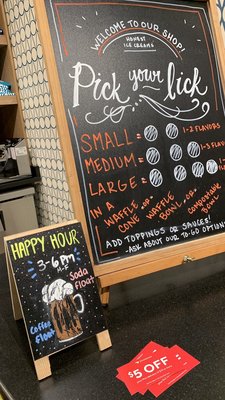 WELCOME TO OUR SHOP!
HONEST
ICE CREAMS
Pick your lick
SMALL 1-2 FLAVORS
MEDIUM 1-3 FLAVOR
LARGE
IN A WAFFLE CONE -OR- WAFFLE BOWL -OR- COMPOSTABLE BOWL
ADD TOPPINGS OR SAUCES!
-ASK ABOUT OUR TO-GO OPTIONS
HAPPY HOUR
3-6pm
M-F
Soda
Float
Coffee
Float
$5 OFF